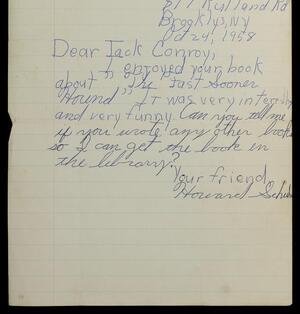 Rutland Rd
Brooklyn, NY
Oct 24, 1958
Dear Jack Conroy,
I enjoyed your book
about "The Fast Sooner
Hound" It was very interesting
and very funny Can you tell me
if you wrote any other books
so I can get the book in
the library?
Your friend,
Howard